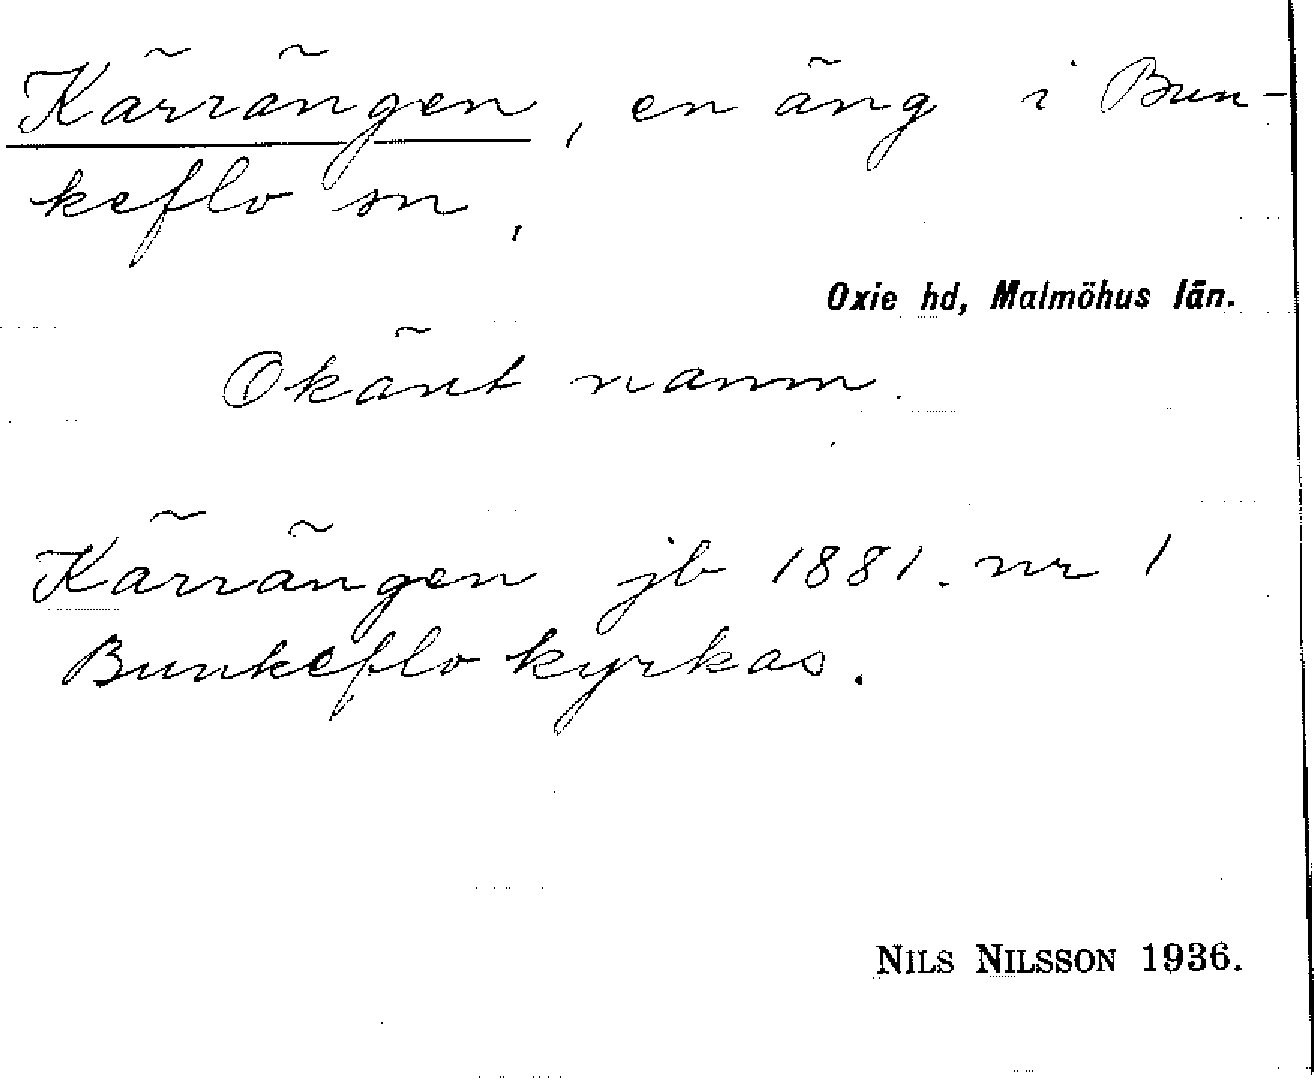 Kärrängen, en äng i Bun-
keflo sn,
Oxie hd, Malmöhus län.
Okänt namn.
Kärrängen jb 1881. nr 1
Bunkeflo kyrkas.
NILS NILSSON 1936.